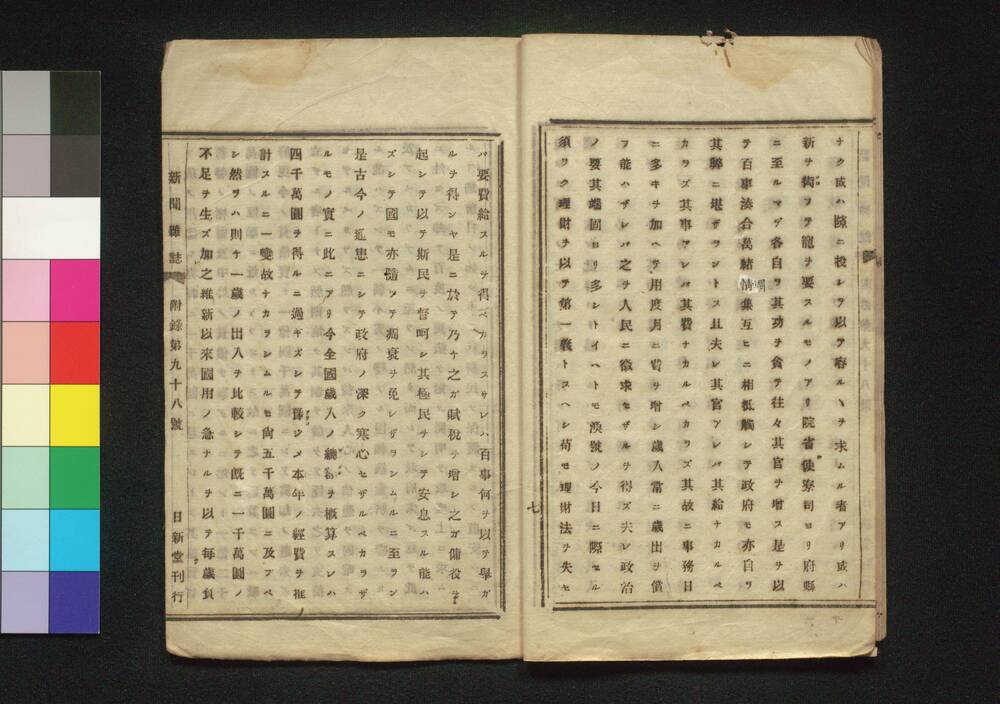 ナク或ハ隙ニ投シテ以テ容ルヽヲ求ムル者アリ或ハ
新ヲ衒フテ寵ヲ要スルモノアリ院省使寮司ヨリ府縣
ニ至ルマデ各自ラ其功ヲ貪テ往々其官ヲ増ス是ヲ以
テ百事湊合萬緒
集互ヒニ相抵觸シテ政府モ亦自ラ
其弊ニ堪ザラントス且夫レ其官アレバ其給ナカルベ
カラズ其事アレバ其費ナカルベカラズ其故ニ事務日
ニ多キヲ加ヘテ用度月ニ費ヲ増シ歳入常ニ歳出ヲ償
フ能ハザレバ之ヲ人民ニ徴求セザルヲ得ズ夫レ政治
ノ要其端固ヨリ多シトイヘトモ渙號ノ今日ニ際セル
須ラク理財ヲ以テ第一義トスヘシ苟モ理財法ヲ失セ
七
バ要費給スルヲ得ベカラズサレハ百事何ヲ以テ擧ガ
ルヲ得ンヤ是ニ於テ乃ヤ之ガ賦税ヲ増シ之ガ傭役ヲ
起シテ以テ斯民ヲ督呵シ其極民ヲシテ安息スル能ハ
ズシテ國モ亦隨ツテ凋衰ヲ免レザランムルニ至ラン
是古今ノ通患ニシテ政府ノ深ク寒心セザルベカラザ
ルモノ實ニ此ニアリ今全國歳入ノ總額ヲ概算スレハ
四千萬圓ヲ得ルニ過ギズシテ豫ジメ本年ノ經費ヲ推
計スルニ一變故ナカラシムルモ尚五千萬圓ニ及フベ
シ然ラハ則チ一歳ノ出入ヲ比較シテ既ニ一千萬圓ノ
不足ヲ生ズ加之維新以來國用ノ急ナルヲ以テ毎歳負
新聞雜誌 附錄第九十八號 日新堂刊行